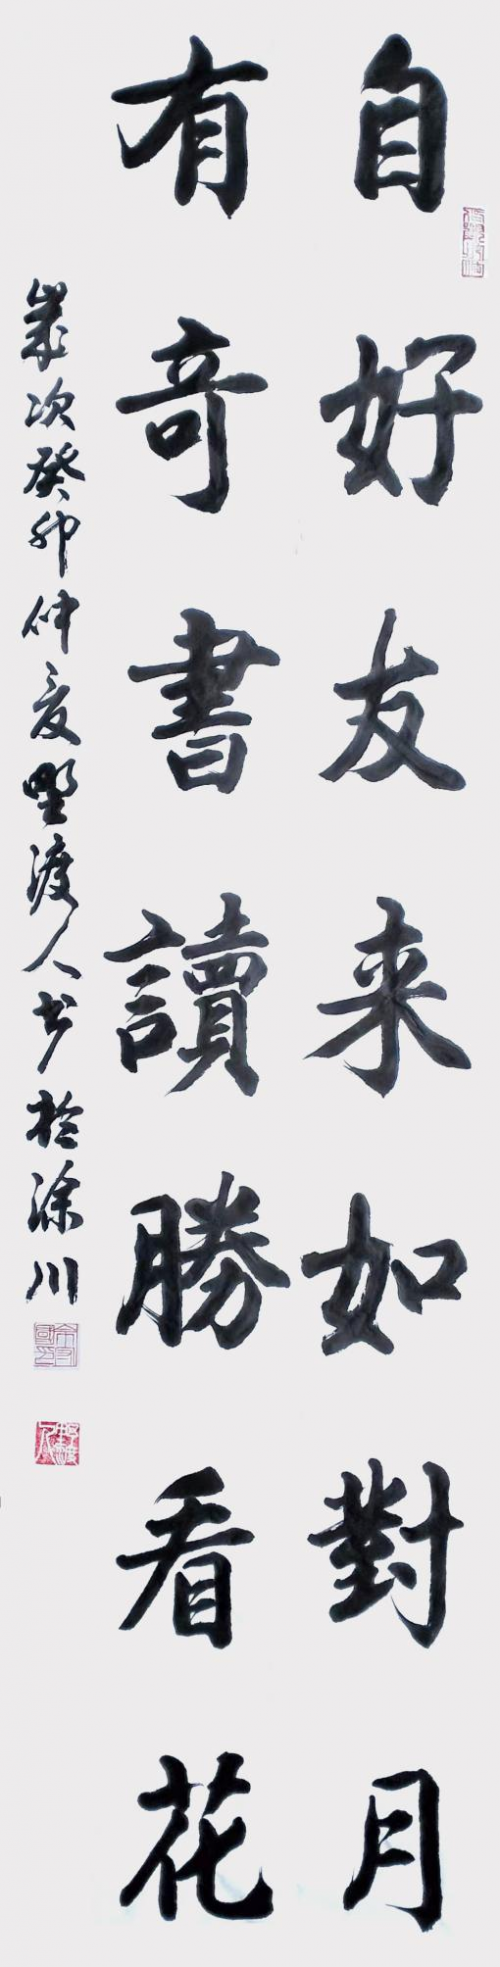 自好友来如對月
有奇書讀勝看花
歲次癸卯仲夏野渡人书於滁川